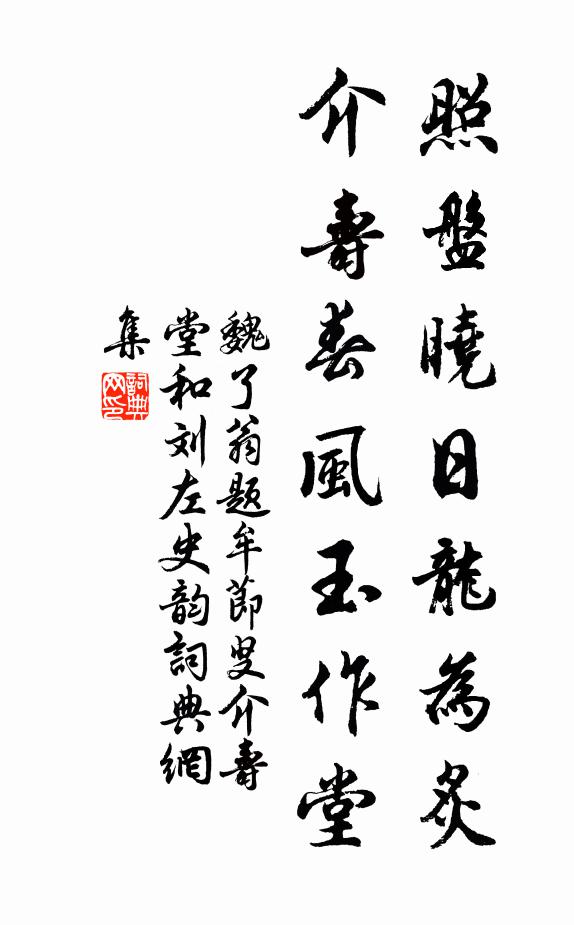 照盤曉日龍為炙
介壽春風玉作堂
魏了翁题牟節叟介壽
堂和刘左史韵詞典網
集
詞典网印